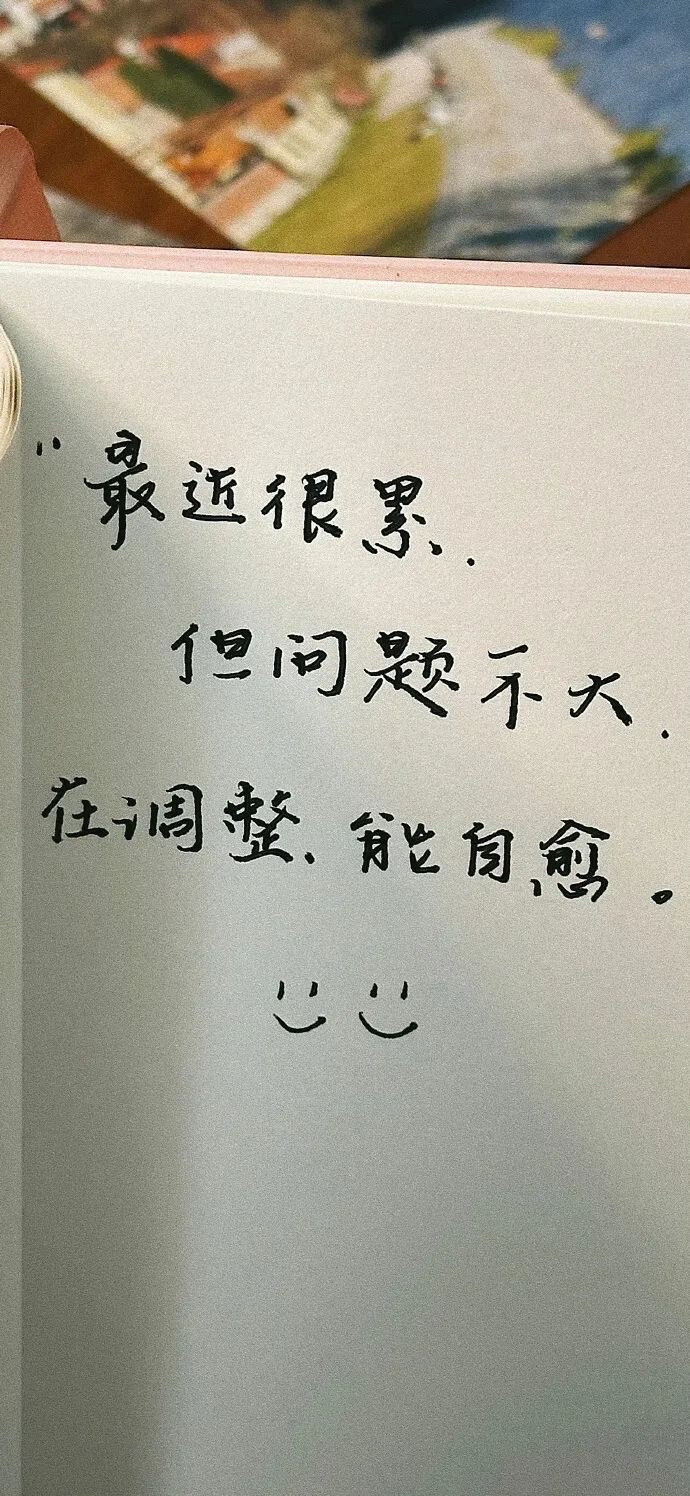 "最近很累.
但问题不大.
在调整、能自愈。